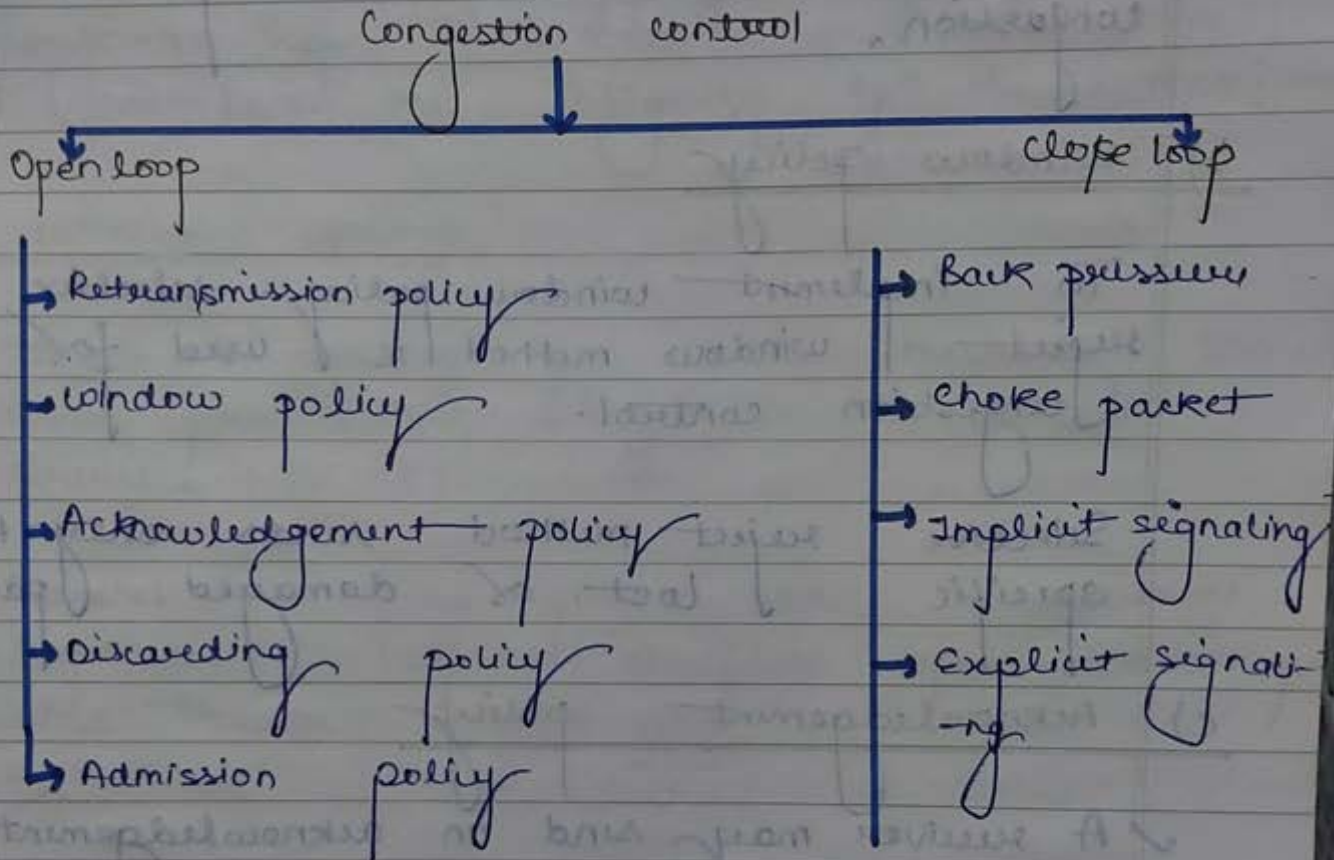 Congestion control
Open loop
Close loop
Retransmission policy
Window policy
Acknowledgement policy
Discarding policy
Admission policy
Back pressure
Choke packet
Implicit signaling
Explicit signali-
-ng